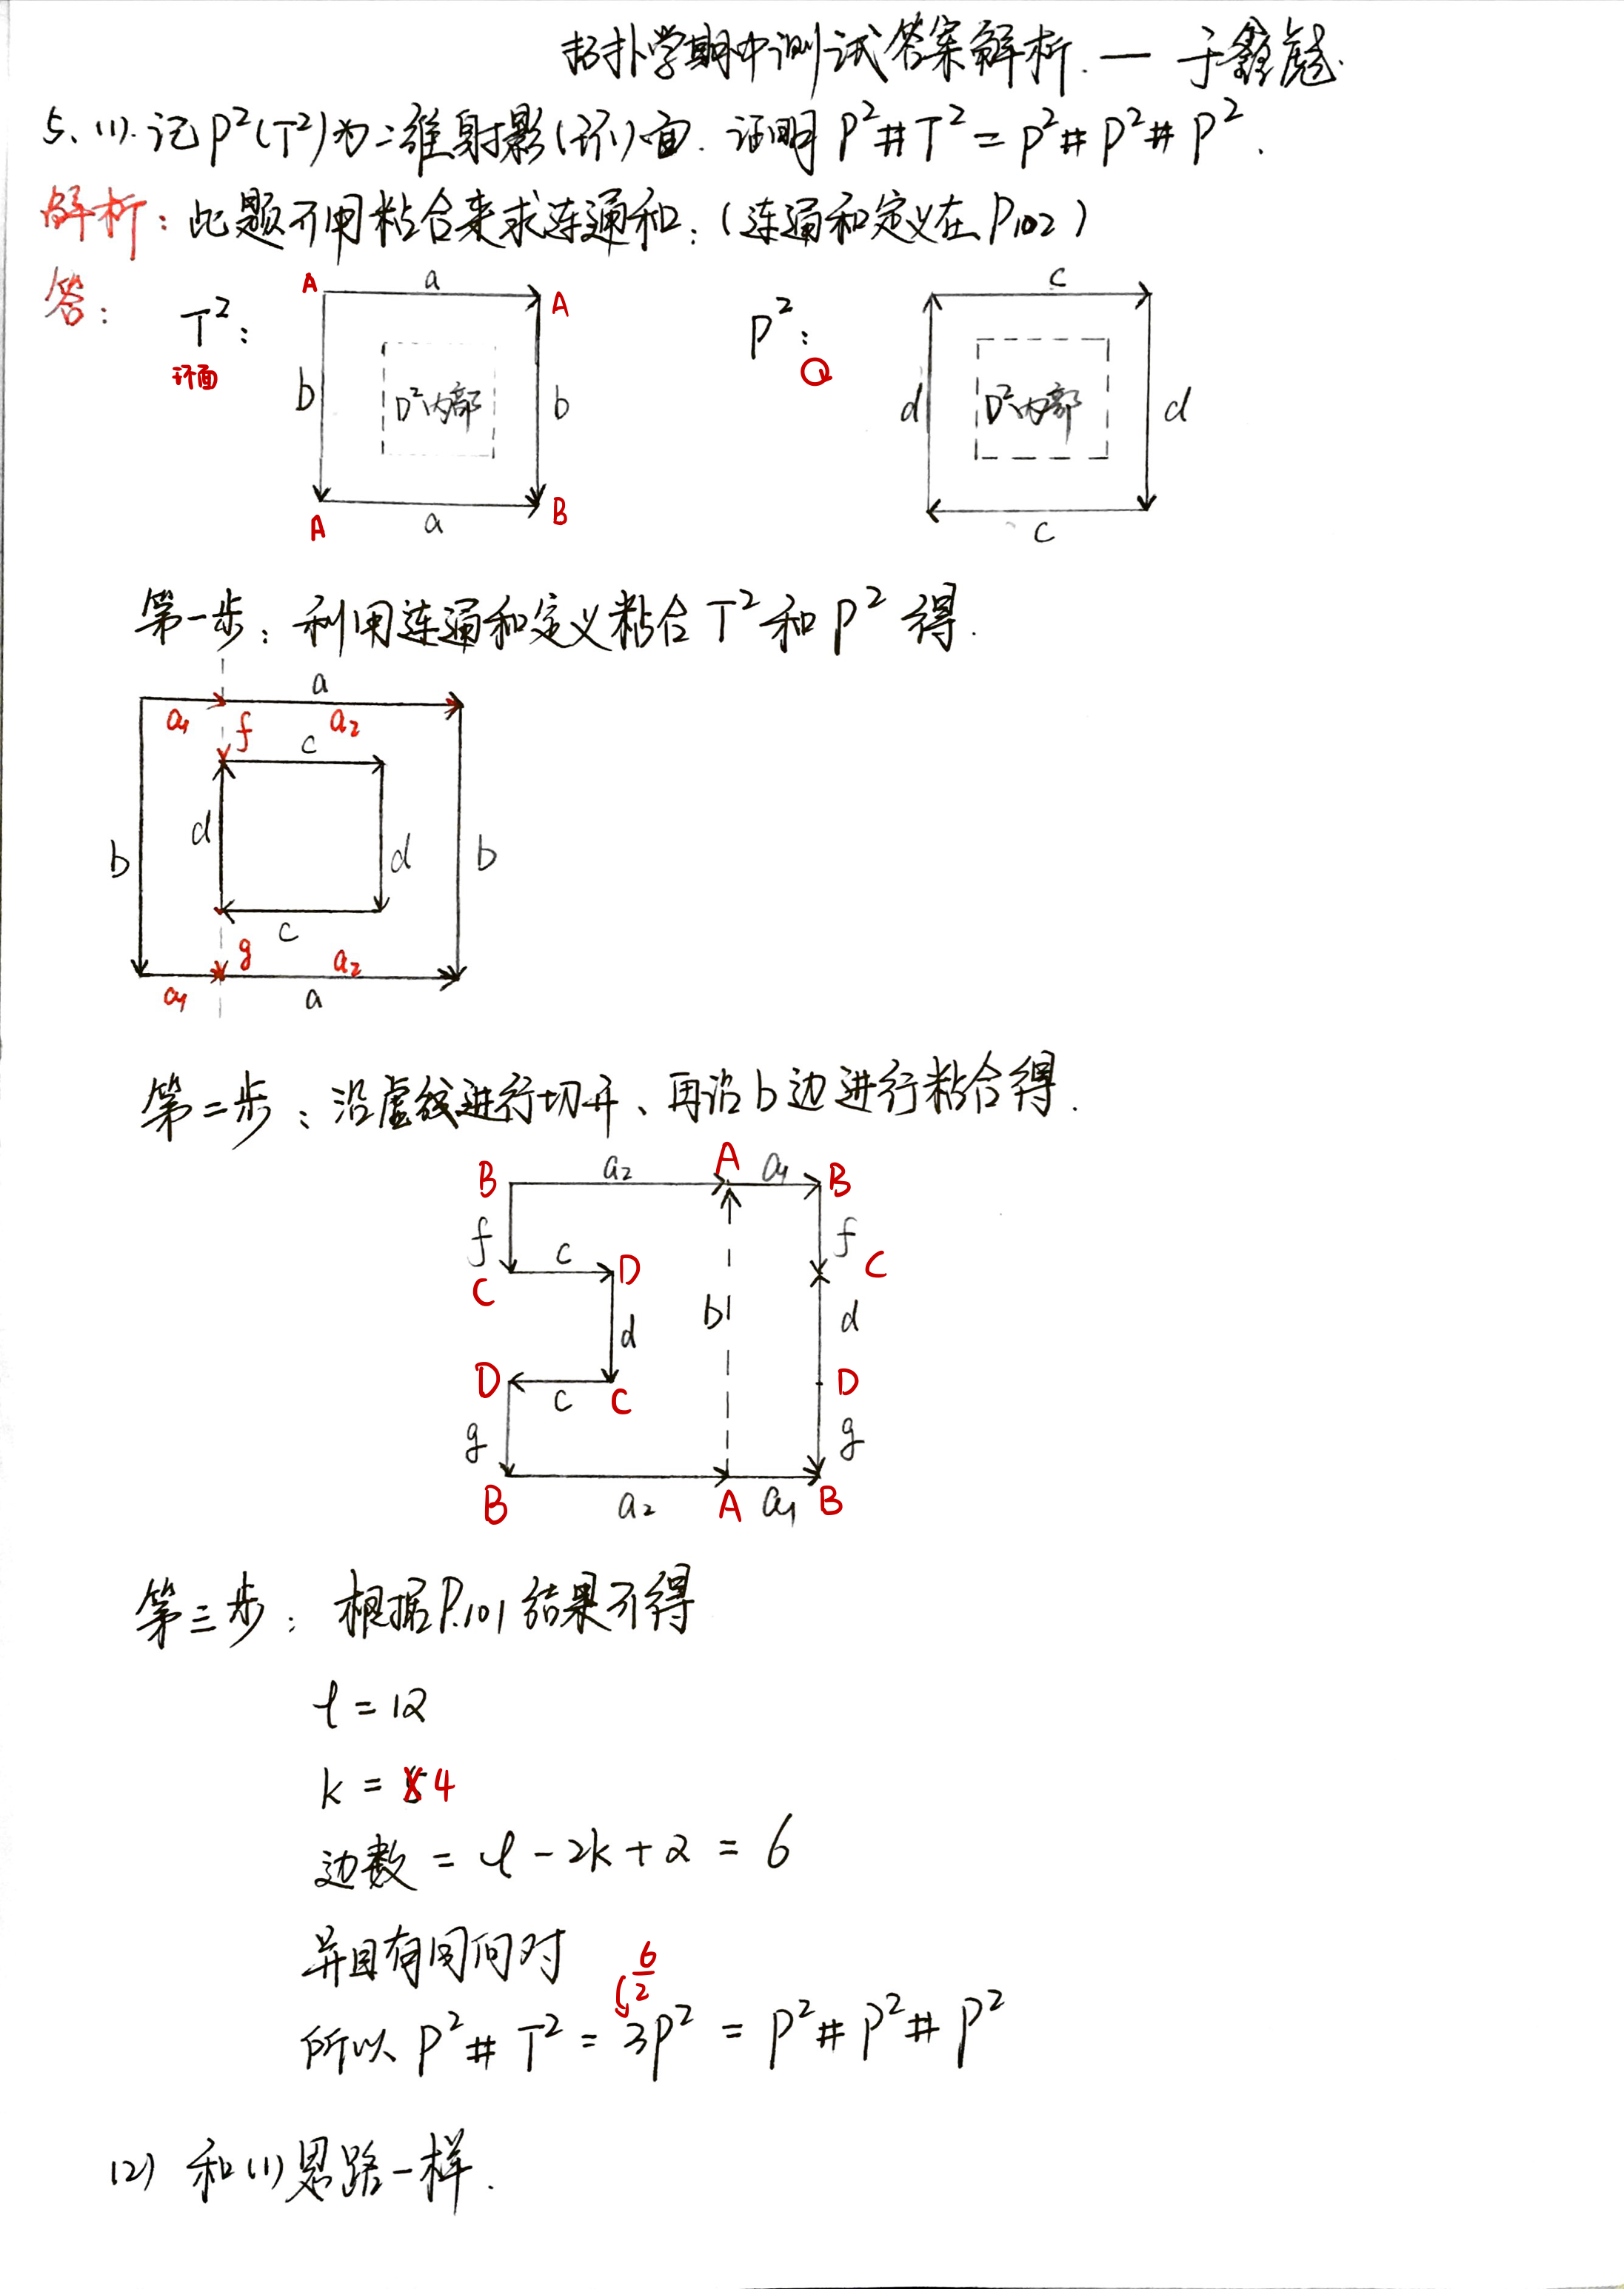 拓扑学期中测试答案解析. — 于鑫彪.
5、(1). 记P²(T²)为二维射影(环)面. 证明 P²#T²=P²#P²#P².
解析: 此题可用粘合来求连通和: (连通和定义在P102)
答: T²: P²: Q
环面
A a A c
b D²内部 b d D²内部 d
A a B c
第一步: 利用连通和定义粘合T²和P²得.
a
a₁ f a₂
c
d
b d b
c
g a₂
a₁ a
第二步: 沿虚线进行切开、再沿b边进行粘合得.
B a₂ A a₁ B
f c f
C D C
b d
d
D c C D
g g
B a₂ A a₁ B
第三步: 根据P.101结果可得
l=12
k = 4
边数 = l-2k+2 = 6
并且有同向对
6/2
所以 P²#T²=3P²=P²#P²#P²
(2) 和(1)思路一样.